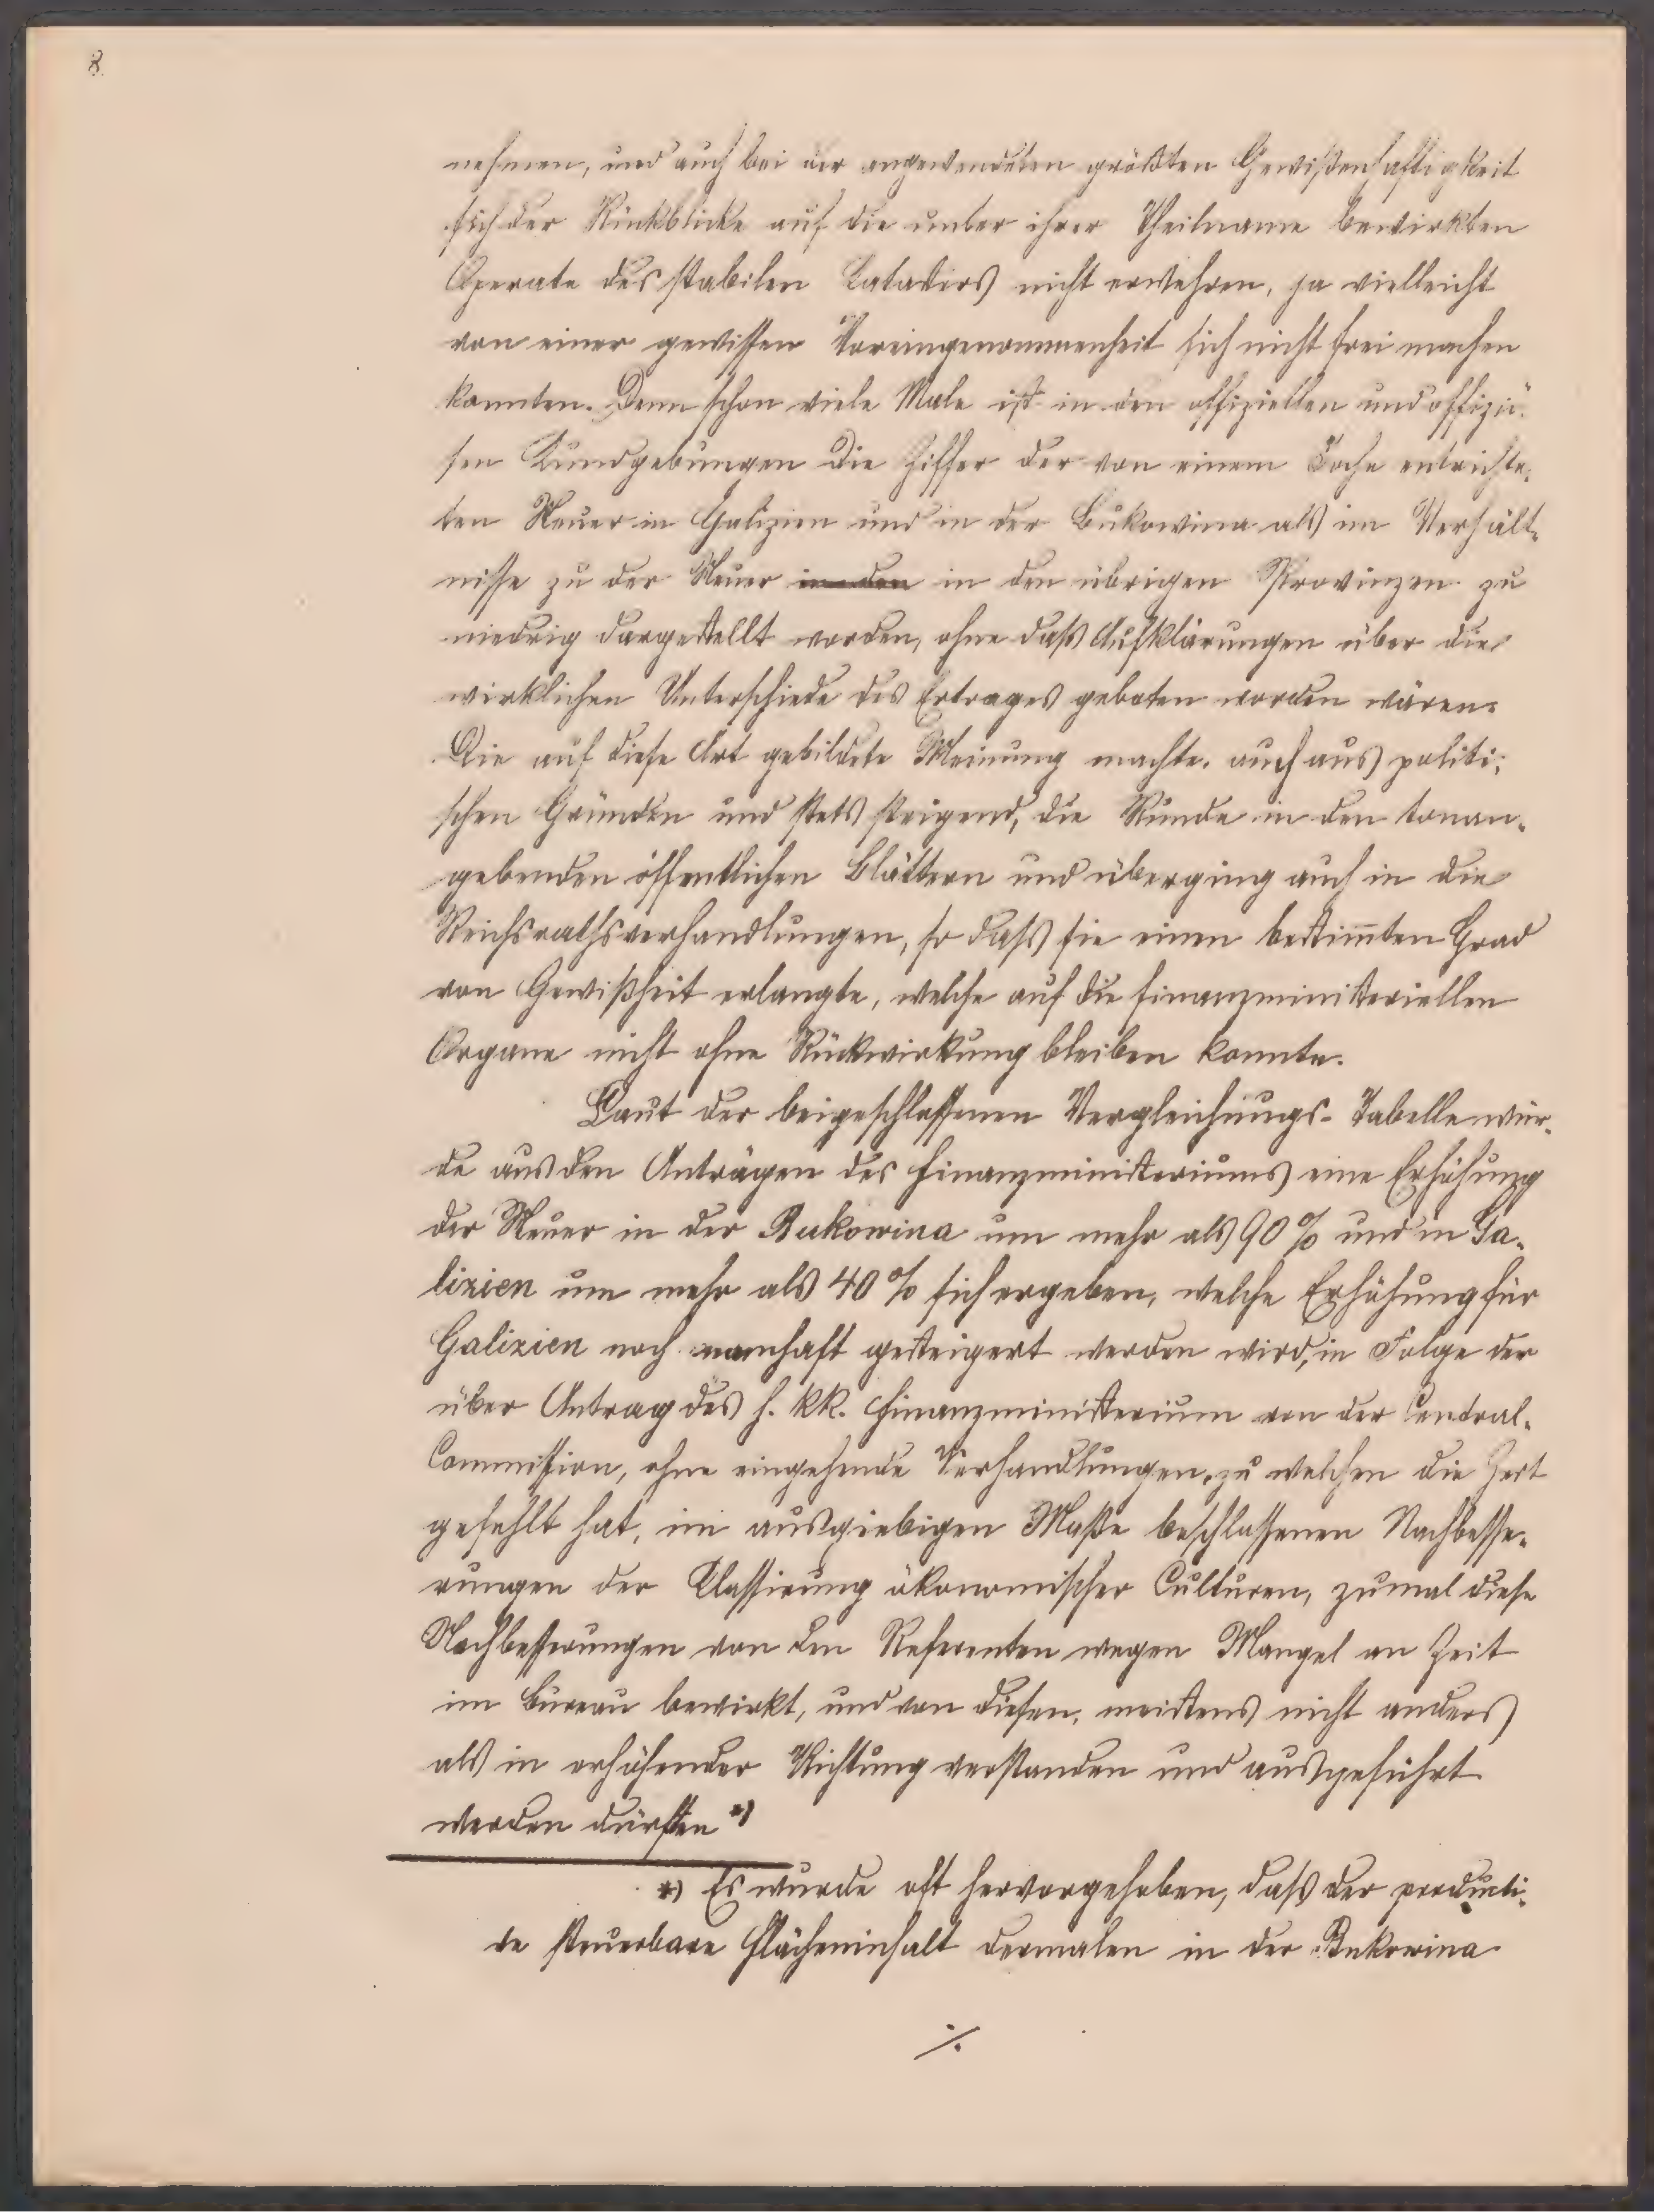 8.
nehmen, und auch bei der angewendeten größten Gewißenhaftigkeit
sich der Rückblicke auf die unter ihrer Theilname bewirkten
Operate des stabilen Katasters nicht erwehren, ja vielleicht
von einer gewissen Voreingenommenheit sich nicht frei machen
konnten. Denn schon viele Male ist in den offiziellen und offiziö-
sen Kundgebungen die Ziffer der von einem Joche entrichte-
ten Steuer in Galizien und in der Bukowina als im Verhält-
nisse zu der Steuer in den in den übrigen Provinzen zu
niedrig dargestellt worden, ohne daß Aufklärungen über die
wirklichen Unterschiede des Ertrages geboten worden wären.
Die auf diese Art gebildete Meinung machte, auch aus politi-
schen Gründen und stets steigend, die Runde in den tonan-
gebenden öffentlichen Blättern und überging auch in die
Reichsrathsverhandlungen, so daß sie einen bestim̅ten Grad
von Gewißheit erlangte, welche auf die finanzministeriellen
Organe nicht ohne Rückwirkung bleiben konnte.
Laut der beigeschlossenen Vergleichungs-Tabelle wür-
de aus den Anträgen des Finanzministeriums eine Erhöhung
der Steuer in der Bukowina um mehr als 90 % und in Ga-
lizien um mehr als 40 % sich ergeben, welche Erhöhung für
Galizien noch namhaft gesteigert werden wird, in Folge der
über Antrag des h. kk. Finanzministerium von der Central-
Commission, ohne eingehende Verhandlungen, zu welchen die Zeit
gefehlt hat, im ausgiebigen Maße beschlossenen Nachbesse-
rungen der Classirung ökonomischer Culturen, zumal diese
Nachbesserungen von den Referenten wegen Mangel an Zeit
im Bureau bewirkt, und von diesen, meistens nicht anders
als in erhöhender Richtung verstanden und ausgeführt
werden dürften *)
*) Es wurde oft hervorgehoben, daß der producti-
ve steuerbare Flächeninhalt dermalen in der Bukowina
./.